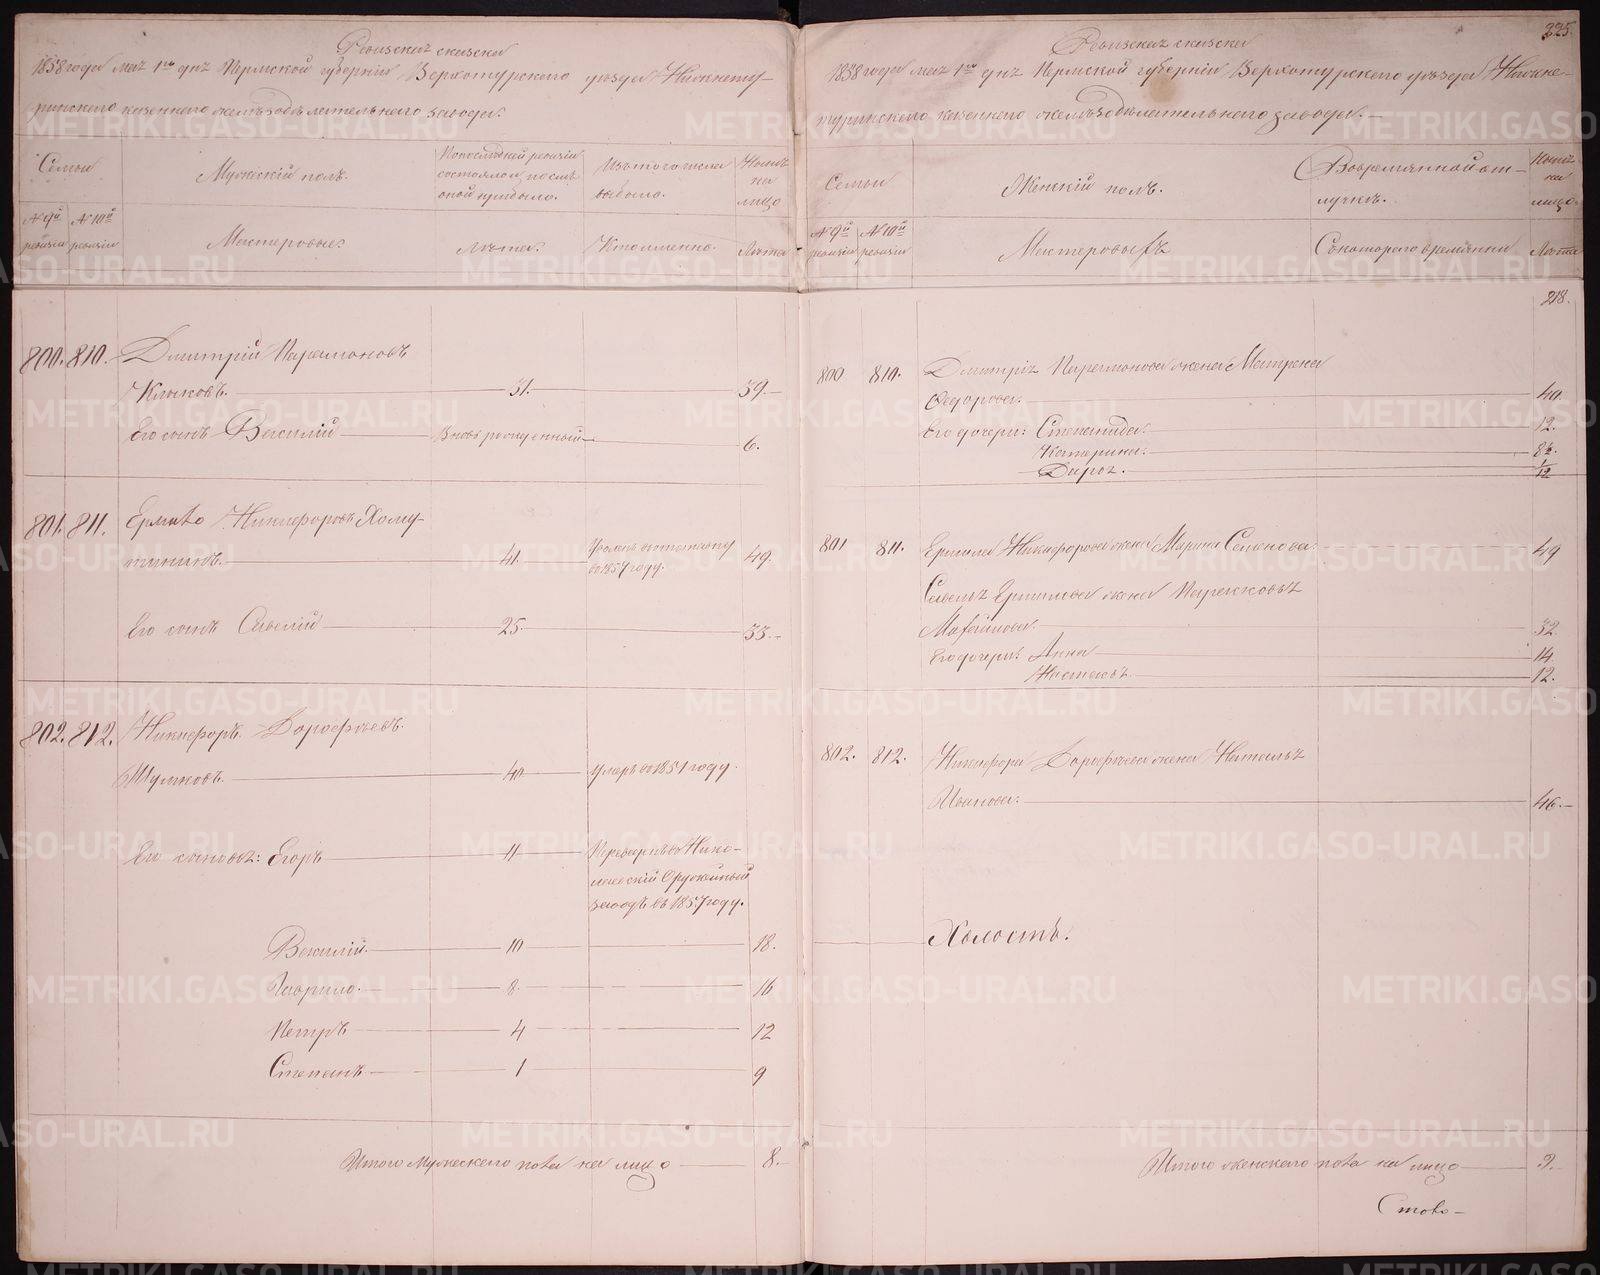 Ревизская сказка
1858 года мая 1го дня Пермской губерніи Верхотурскаго уѣзда Нижнету-
ринскаго казеннаго желѣзодѣлательнаго завода.
Семьи
Мужескій полъ.
По послѣдней ревизіи
состояло и послѣ
оной прибыло.
Изъ того числа
выбыло.
Нынѣ
на
лицо
№ 9й
ревизіи
№ 10й
ревизіи
Мастеровые:
Лѣта.
Когда именно.
Лѣта
800. 810. Дмитрій Парамоновъ
Клыковъ. 31. 39.
Его сынъ Василій Вновь рожденный 6.
801. 811. Ермило Никифоровъ Хому-
тининъ. 41. Уволенъ въ отставку
въ 1857 году. 49.
Его сынъ Савелій 25. 33.
802. 812. Никифоръ Дорофѣевъ
Шумковъ. 40 умеръ въ 1851 году.
Его сыновья: Егоръ 11 Переведенъ въ Нико-
лаевскій Оружейный
заводъ въ 1857 году.
Василій 10 18.
Гаврило 8 16
Петръ 4 12
Степанъ 1 9
Итого мужескаго пола на лицо 8.
225.
Ревизская сказка
1858 года мая 1го дня Пермской губерніи Верхотурскаго уѣзда Нижне-
туринскаго казеннаго желѣзодѣлательнаго завода.
Семьи
Женскій полъ.
Во временной от-
лучкѣ.
Нынѣ
на
лицо
№ 9й
ревизіи
№ 10й
ревизіи
Мастеровыхъ
Съ котораго времени
Лѣта
218.
800 810. Дмитрія Парамонова жена Матрена
Федорова. 40.
Его дочери: Степанида. 12.
Катерина. 8½.
Дарья. 1/12
801 811. Ермила Никифорова жена Марина Семенова. 49
Савелья Ермилова жена Парасковья
32.
Его дочери: Анна 14
Настасья. 12.
802. 812. Никифора Дорофѣева жена Наталья
Иванова: 46.
Холостъ.
Итого женскаго пола на лицо 9.
METRIKI.GASO-URAL.RU